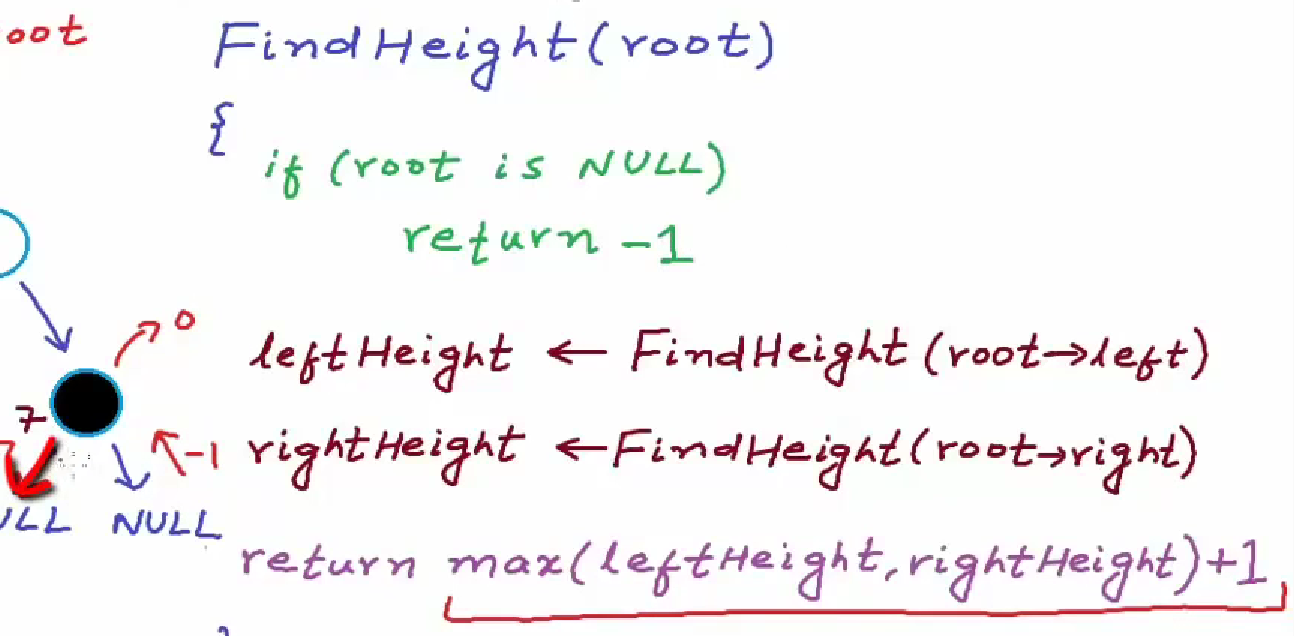 oot
FindHeight(root)
{
if (root is NULL)
return -1
0
leftHeight ← FindHeight(root→left)
7
-1
rightHeight ←FindHeight(root→right)
ULL NULL
return max(leftHeight, rightHeight)+1